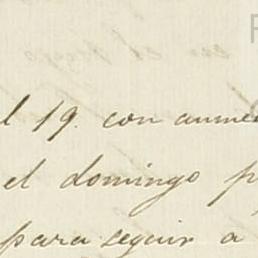 l 19. con aume
el domingo p
para seguir a